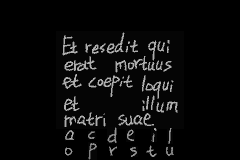 Et resedit qui
erat mortuus
et coepit loqui
et illum
matri suae.
a c d e i l
o p r s t u